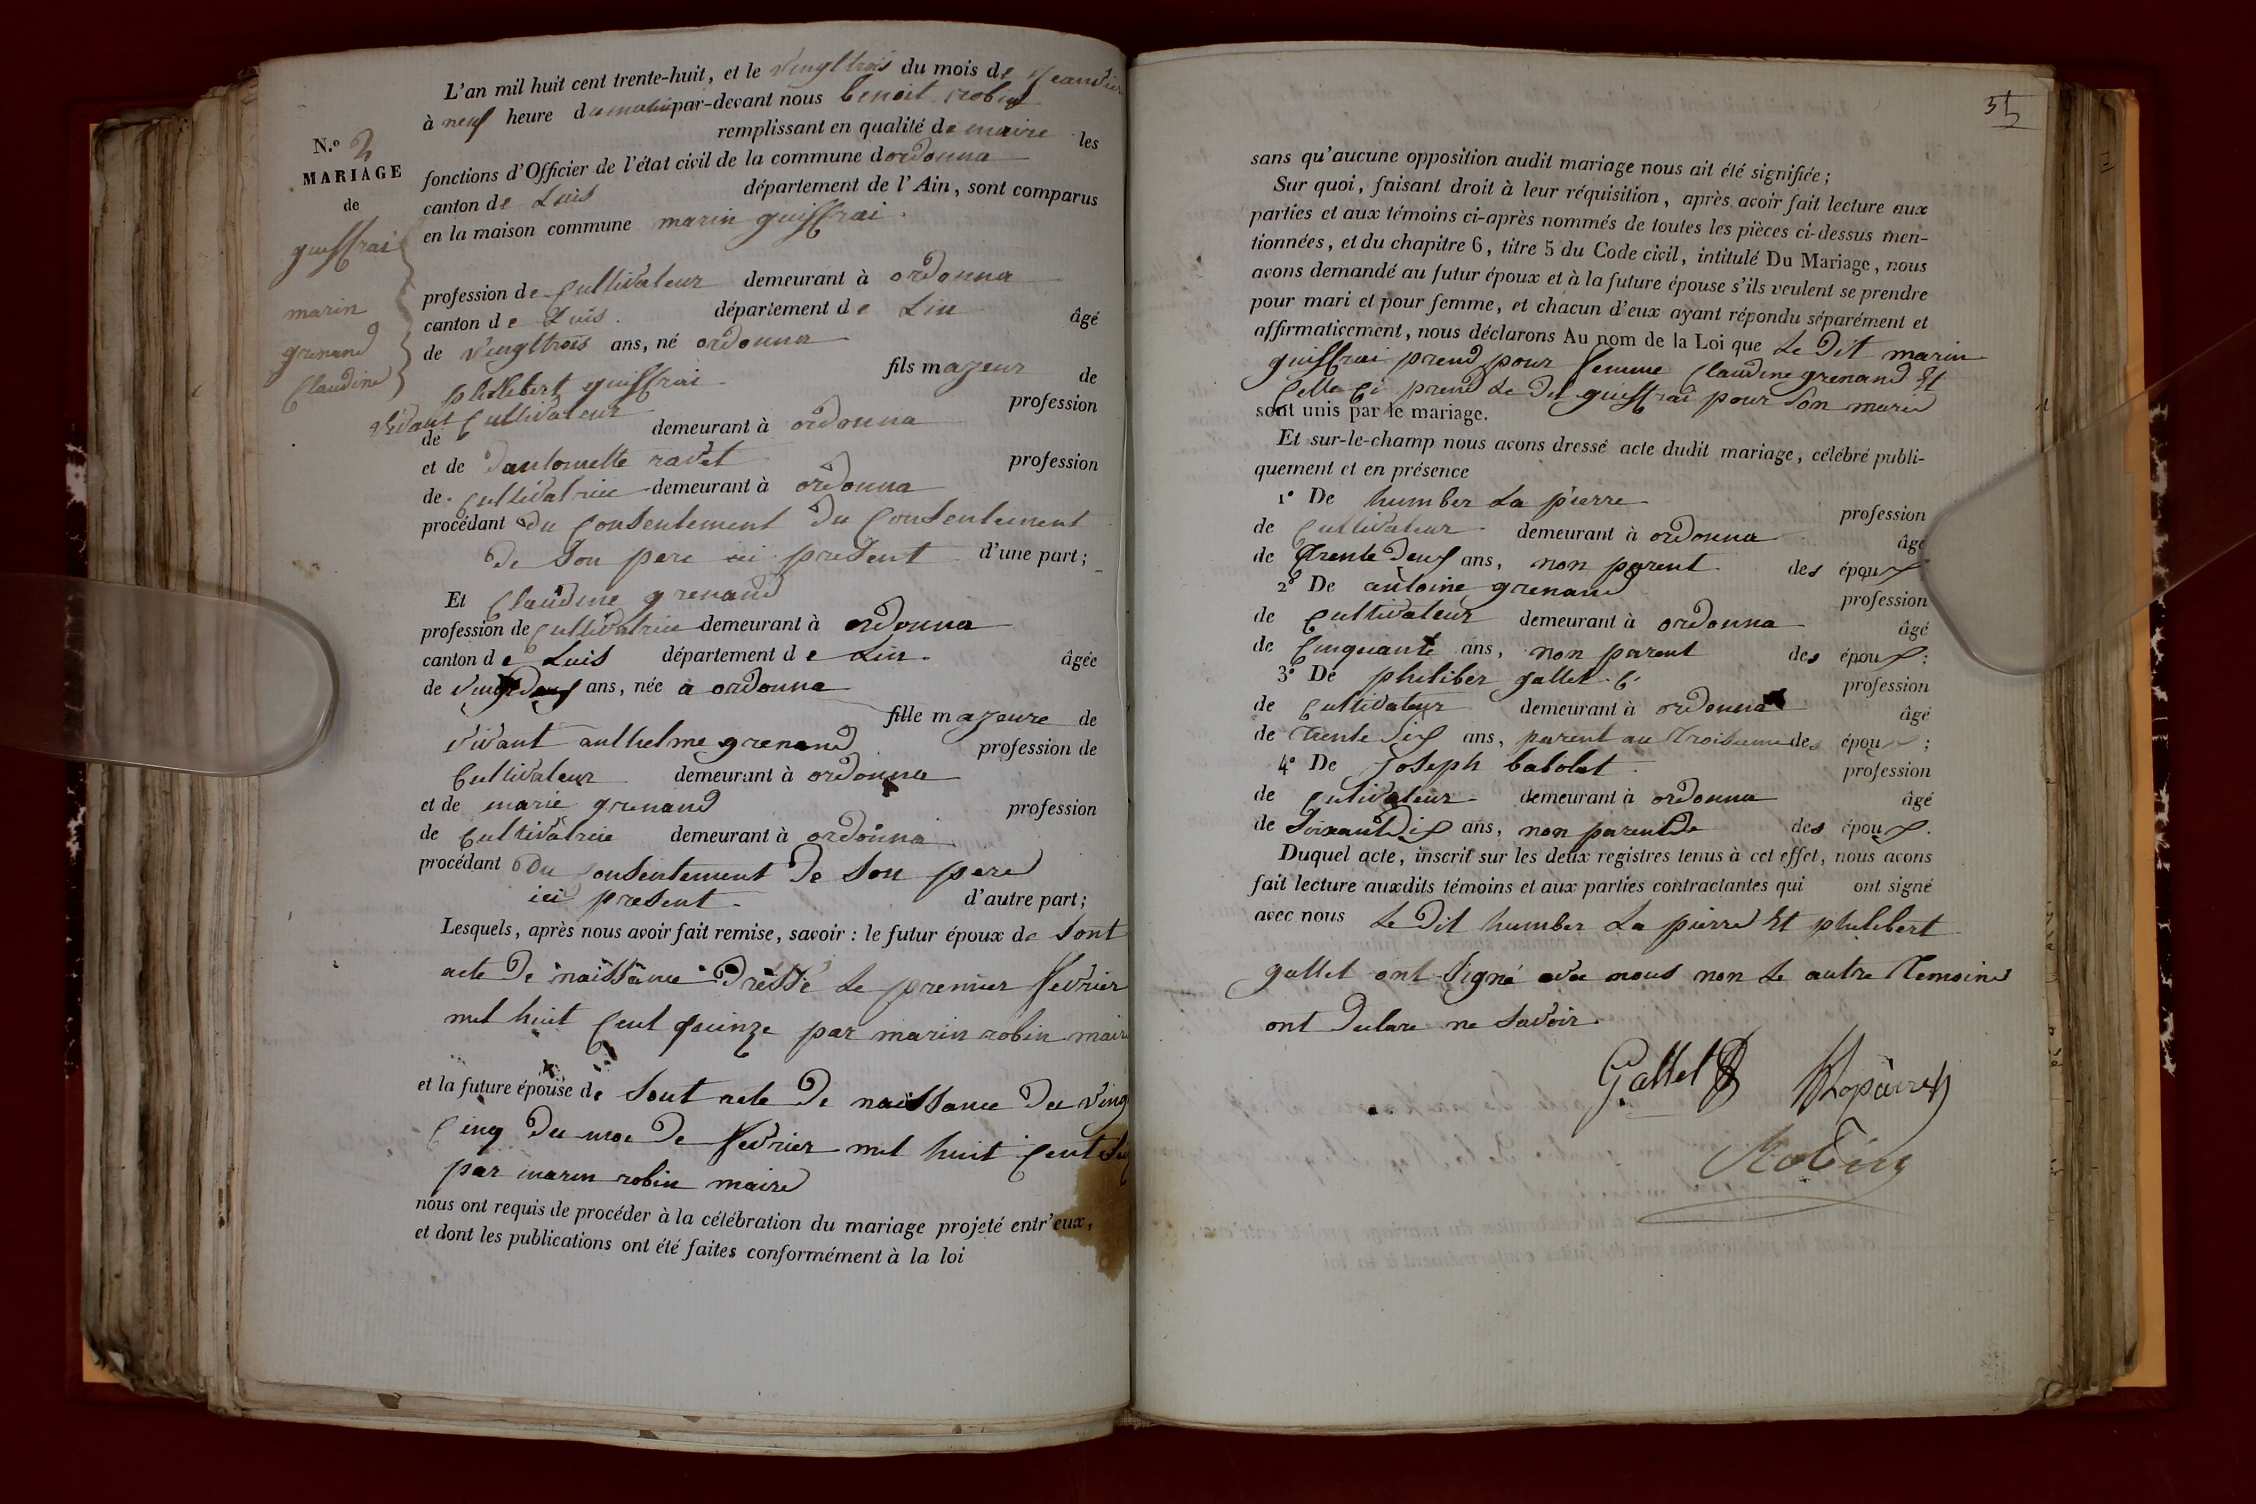 L'an mil huit cent trente-huit, et le vingt trois du mois de jeanvier
à neuf heure du matin par-devant nous benoit robin
remplissant en qualité de maire les
fonctions d'Officier de l'état civil de la commune dordonna
canton de Luis département de l'Ain, sont comparus
en la maison commune marin guiffrai
N.º 2
MARIAGE
de
guiffrai
marin
grenand
Claudine
profession de Cultivateur demeurant à ordonna
canton de Luis département de Lin âgé
de vingttrois ans, né ordonna
fils mazeur de
philibert guiffrai profession
vivant Cultivateur
de demeurant à ordonna
et de dantoinette ravet profession
de Cultivatrice demeurant à ordonna
procédant du Consentement du Consentement
de son pere ici present d'une part;
Et Claudine grenand
profession de Cultivatrice demeurant à ordonna
canton de Luis département de Lin âgée
de ans, née a ordonna
fille mazeure de
vivant anthelme grenand profession de
Cultivateur demeurant à ordonna
et de marie grenand profession
de Cultivatrice demeurant à ordonna
procédant du Consentement de son pere
ici present d'autre part;
Lesquels, après nous avoir fait remise, savoir : le futur époux de sont
acte de naissance dressé le premier fevrier
mil huit Cent quinze par marin robin maire
et la future épouse de sont acte de naissance du ving
Cinq du moe de fevrier mil huit Cent
par marin robin maire
nous ont requis de procéder à la célébration du mariage projeté entr'eux,
et dont les publications ont été faites conformément à la loi
sans qu'aucune opposition audit mariage nous ait été signifiée;
Sur quoi, faisant droit à leur réquisition, après avoir fait lecture aux
parties et aux témoins ci-après nommés de toutes les pièces ci-dessus men-
tionnées, et du chapitre 6, titre 5 du Code civil, intitulé Du Mariage, nous
avons demandé au futur époux et à la future épouse s'ils veulent se prendre
pour mari et pour femme, et chacun d'eux ayant répondu séparément et
affirmativement, nous déclarons Au nom de la Loi que Le dit marin
guiffrai prend pour femme Claudine grenand Et
Celle Ci prend Le dit guiffrai pour son marie
sont unis par le mariage.
Et sur-le-champ nous avons dressé acte dudit mariage, célébré publi-
quement et en présence
1º De humber La pierre profession
de Cultivateur demeurant à ordonna âgé
de trente deuf ans, non parent des époux
2º De antoine grenand profession
de Cultivateur demeurant à ordonna âgé
de Cinquante ans, non parent des époux;
3º De philiber gallet profession
de Cultivateur demeurant à ordonna âgé
de trente dix ans, parent au troisieme des époux;
4º De Joseph babolat profession
de Cultivateur demeurant à ordonna âgé
de soixantdix ans, non parent de des époux.
Duquel acte, inscrit sur les deux registres tenus à cet effet, nous avons
fait lecture auxdits témoins et aux parties contractantes qui ont signé
avec nous Le dit humber La pierre Et philibert
gallet ont signé avec nous non Le autre temoine
ont declare ne savoir
Gallet Lapierre
Robin